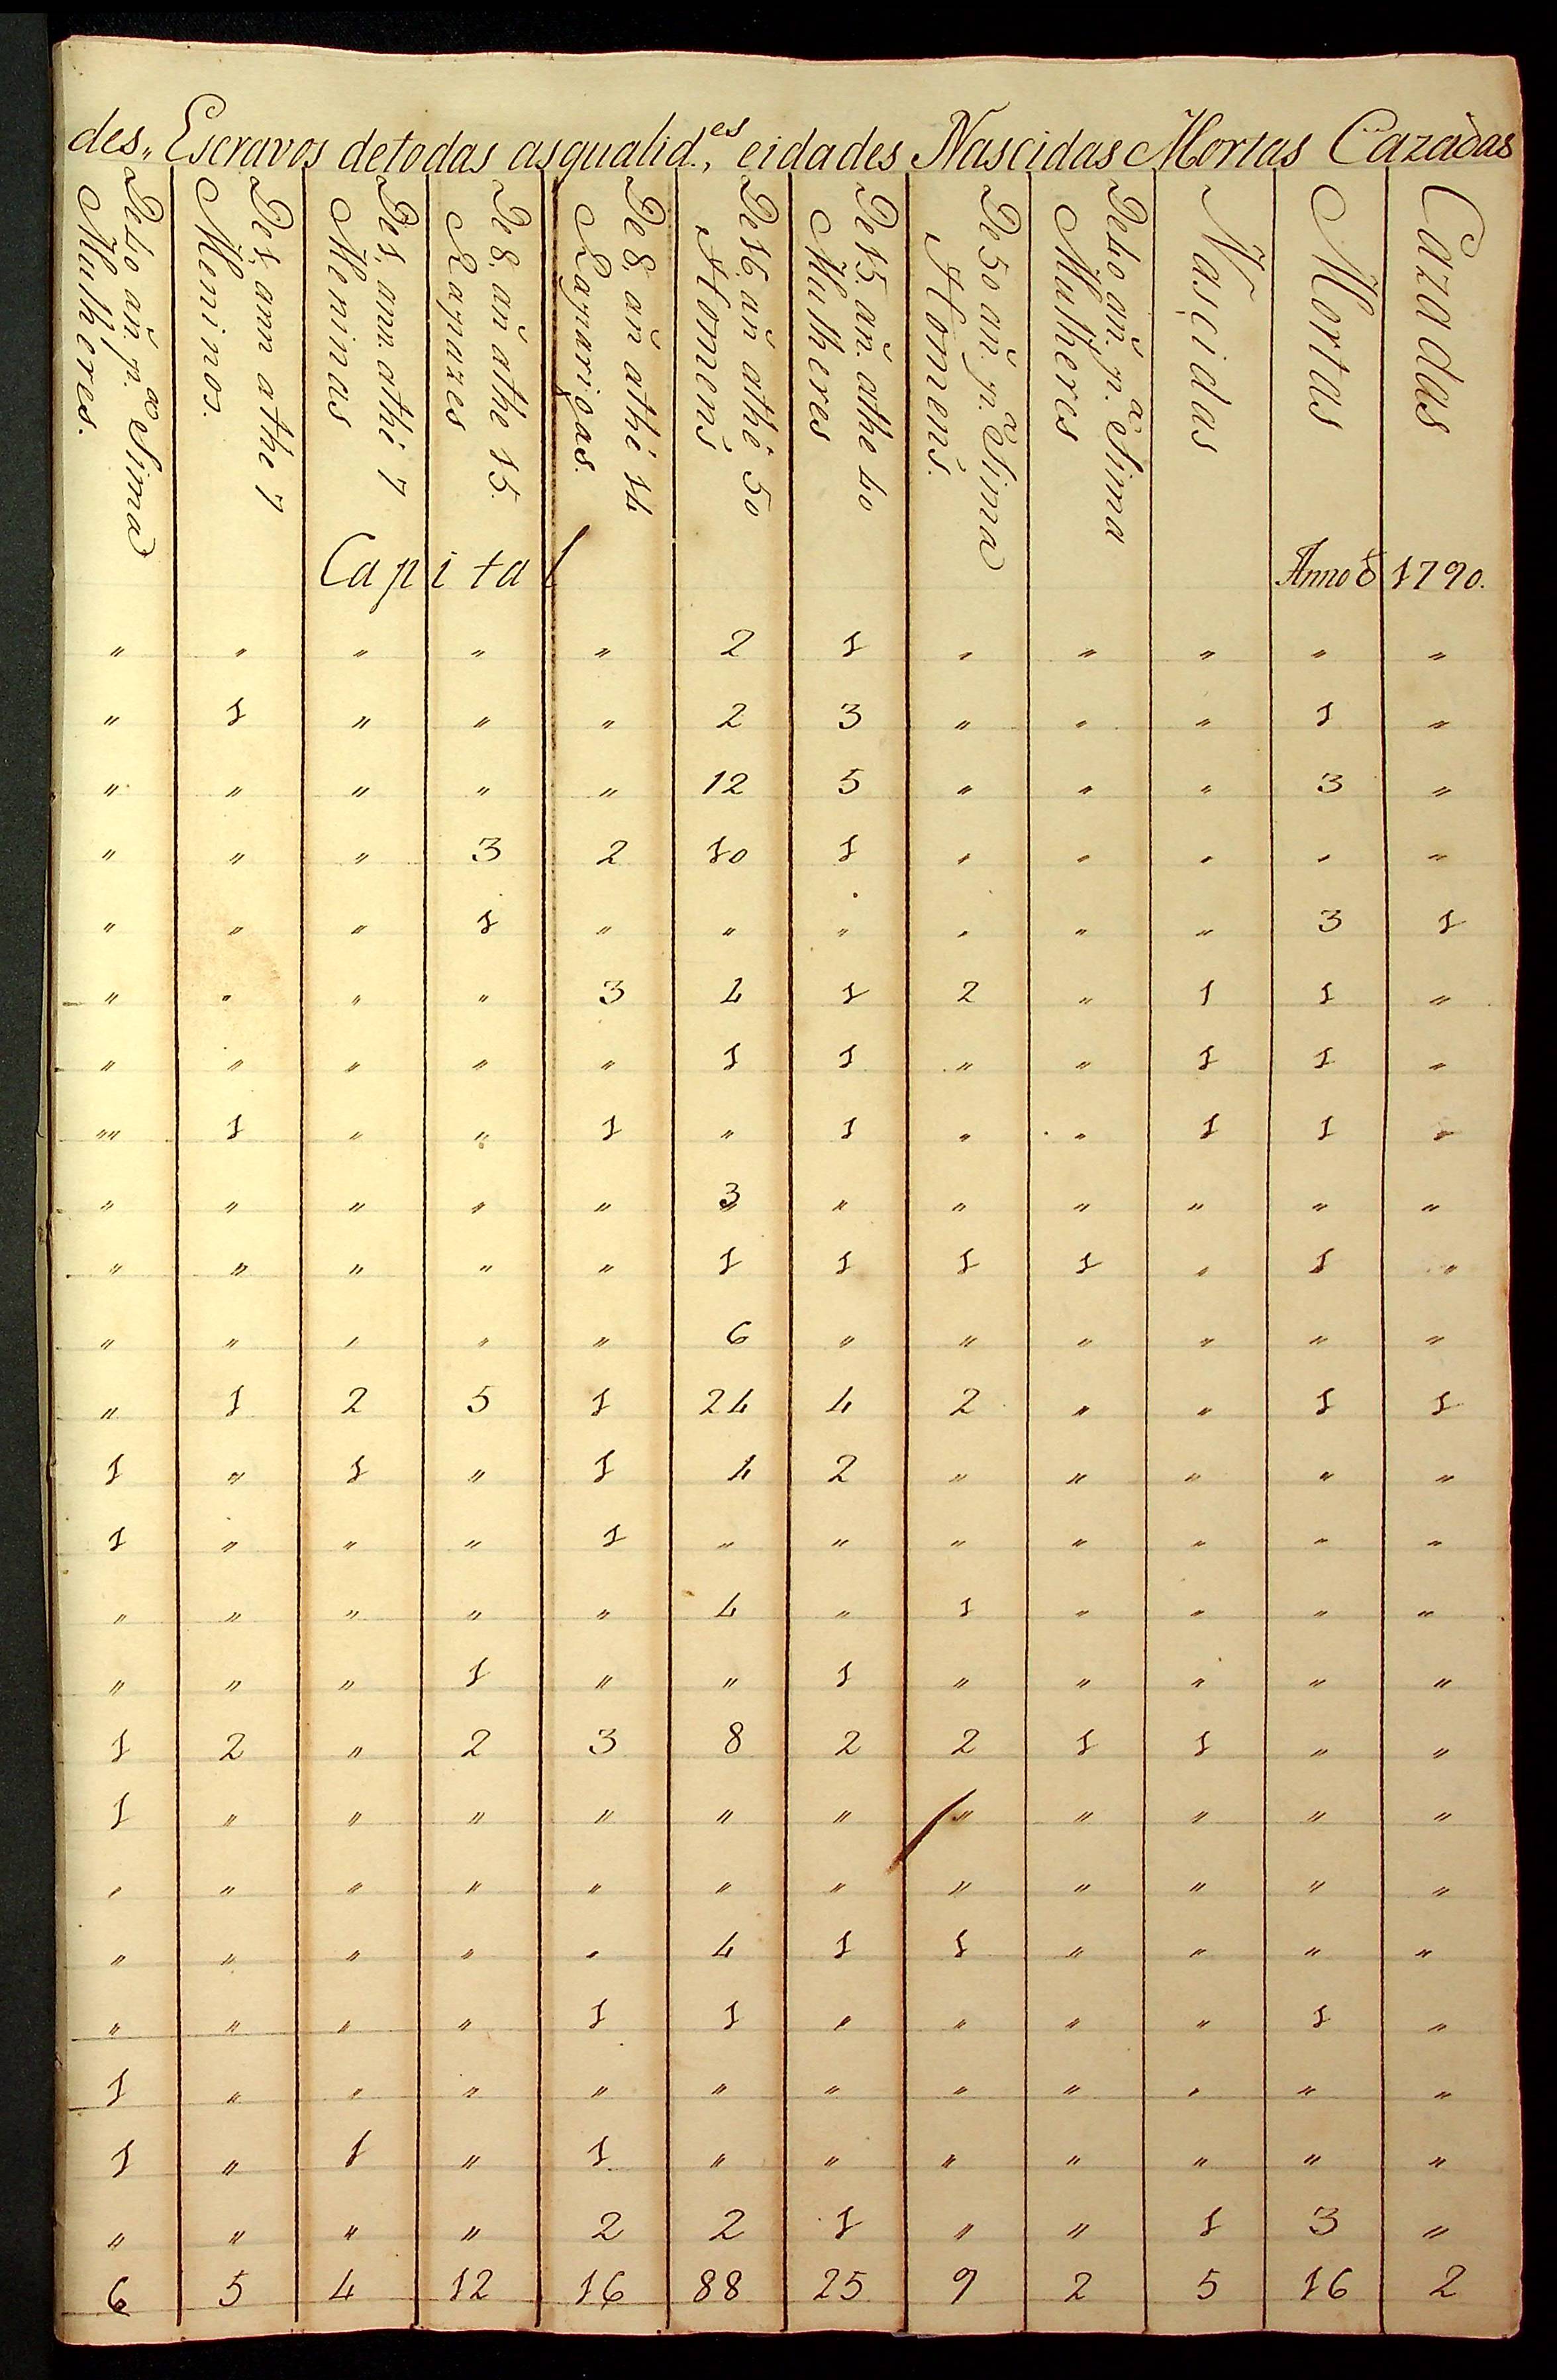 des,, Escravos detodas asqualid.es, eidades Nascidas Mortas Cazadas
De 40 añ. p.a Sima Mulheres.
De 1, ann athe 7 Meninos.
De 1, ann athé 7 Meninas
De 8, añ athe 15. Rapazes
De 8, añ athé 14 Raparigas.
De 16, añ athé 50 Homens
De 15. añ. athe 40 Mulheres
De 50 añ. p.a Sima Homens.
De 40 añ. p.a Sima Mulheres
Nascidas
Mortas
Cazadas
Capital Anno d 1790.
" " " " " 2 1 " " " " "
" 1 " " " 2 3 " " " 1 "
" " " " " 12 5 " " " 3 "
" " " 3 2 10 1 " " " " "
" " " 1 " " " " " " 3 1
" " " " 3 4 1 2 " 1 1 "
" " " " " 1 1 " " 1 1 "
"" 1 " " 1 " 1 " " 1 1 "
" " " " " 3 " " " " " "
" " " " " 1 1 1 1 " 1 "
" " " " " 6 " " " " " "
" 1 2 5 1 24 4 2 " " 1 1
1 " 1 " 1 4 2 " " " " "
1 " " " 1 " " " " " " "
" " " " " 4 " 1 " " " "
" " " 1 " " 1 " " " " "
1 2 " 2 3 8 2 2 1 1 " "
1 " " " " " " " " " " "
" " " " " " " " " " " "
" " " " " 4 1 1 " " " "
" " " " 1 1 " " " " 1 "
1 " " " " " " " " " " "
1 " 1 " 1 " " " " " " "
" " " " 2 2 1 " " 1 3 "
6 5 4 12 16 88 25 9 2 5 16 2